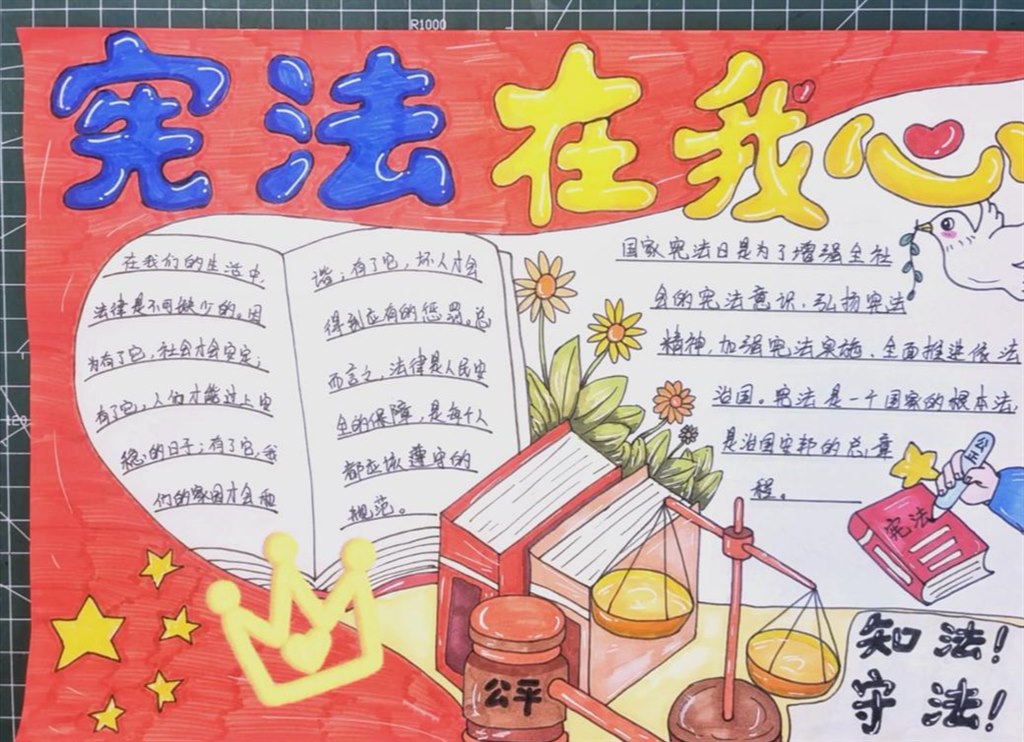 R1000
宪法在我心
在我们的生活中,
法律是不可缺少的。因
为有了它,社会才会安定;
有了它,人们才能过上安
稳的日子;有了它,我
们的家园才会和
谐;有了它,坏人才会
得到应有的惩罚。总
而言之,法律是人民安
全的保障,是每个人
都应该遵守的
规范。
国家宪法日是为了增强全社
会的宪法意识,弘扬宪法
精神,加强宪法实施,全面推进依法
治国。宪法是一个国家的根本法,
是治国安邦的总章
程。
公正
宪法
公平
知法!
守法!